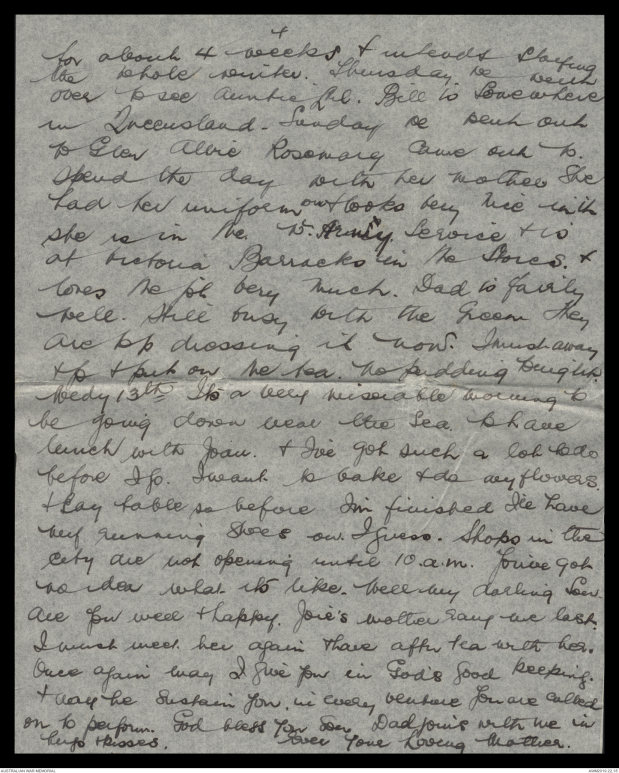 for about 4 weeks & intends staying
the whole winter. Thursday we went
over to see Auntie Lil. Bill is Somewhere
in Queensland. Sunday we went out
to Glen Alvie Rosemary came out to
spend the day with her mother She
had her uniform on & looks very nice in it
she is in the Army Service & is
at Victoria Barracks in the Stores. &
loves the job very much. Dad is fairly
well. Still busy with the Green They
are top dressing it now. I must away
& put on the tea. No pudding tonight.
Wedy 13th Its a very miserable morning to
be going down near the Sea. to have
lunch with Joan. & I've got such a lot to do
before I go. I want to bake & do my flowers.
& lay table so before I'm finished I'll have
my running shoes on. I guess. Shops in the
city are not opening until 10 a.m. You've got
no idea what its like. Well my darling Son
are you well & happy. Joie's mother rang me last.
I must meet her again & have aftn tea with her.
Once again may I give you in God's good keeping.
& may he sustain you, in every venture you are called
on to perform. God bless you Son. Dad joins with me in
hugs & kisses. Ever your loving Mother.
AUSTRALIAN WAR MEMORIAL